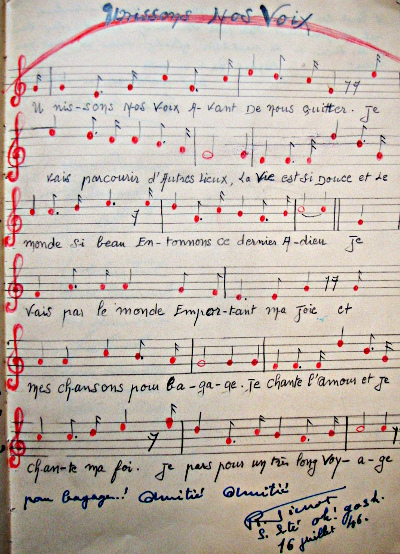 Unissons Nos Voix
U nis-sons Nos Voix A-vant De nous quitter. Je
vais parcourir d'Autres Lieux, La Vie est si Douce et Le
monde si beau En-tonnons ce dernier A-dieu Je
Vais par le monde Empor-tant ma Joie et
mes chansons pour ba-ga-ge. Je chante l'amour et Je
Chan-te ma foi. Je pars pour un très long Voy-a-ge
pour bagage..! Amitié Amitié
16 juillet 46.